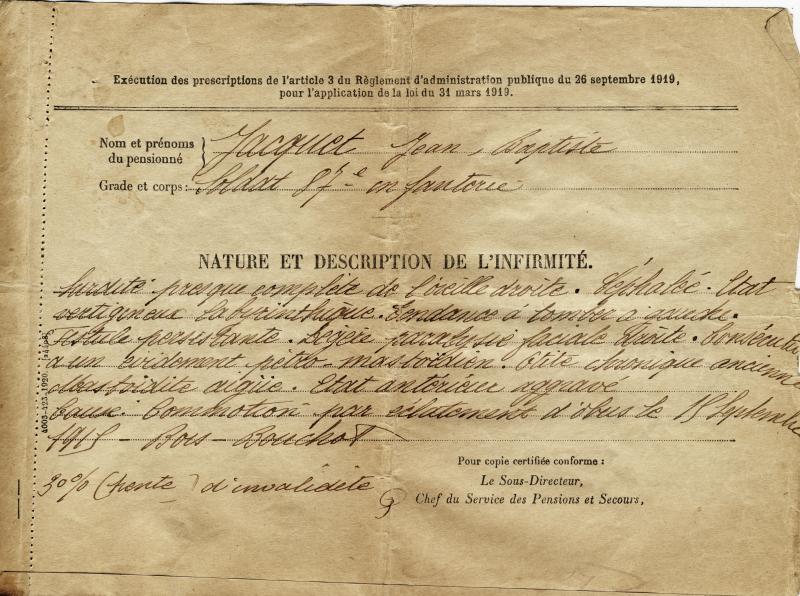 Exécution des prescriptions de l'article 3 du Règlement d'administration publique du 26 septembre 1919,
pour l'application de la loi du 31 mars 1919.
Nom et prénoms
du pensionné } Jacquet Jean, Baptiste
Grade et corps: Soldat 87e infanterie
NATURE ET DESCRIPTION DE L'INFIRMITÉ.
Surdité presque complète de l'oreille droite. Céphalée. Etat
vertigineux labyrinthique. Tendance à tomber à gauche.
Fistule persistante. Légère paralysie faciale droite. Consécutive
a un évidement pétro-mastoïdien. Otite chronique ancienne
Mastoïdite aigüe. Etat antérieur aggravé
Commotion par éclatement d'obus le 15 Septembre
1915 - Bois-Bouchot
30% (trente) d'invalidité
Pour copie certifiée conforme :
Le Sous-Directeur,
Chef du Service des Pensions et Secours,